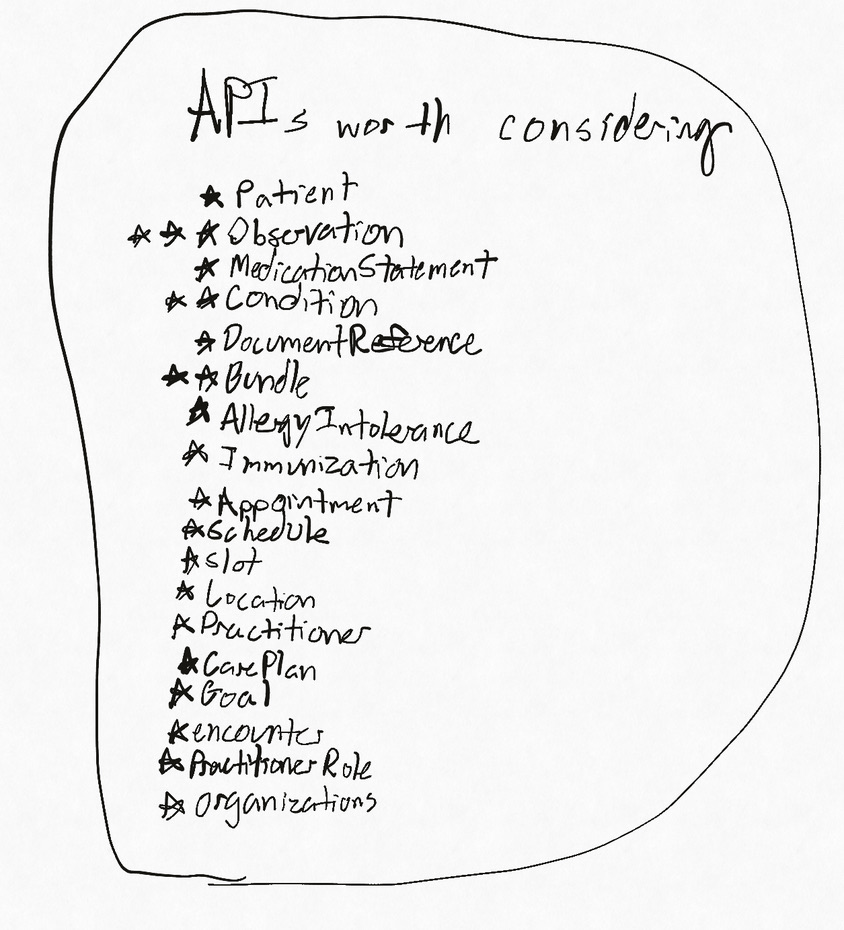 APIs worth considering
★ Patient
★ ★ ★ Observation
★ MedicationStatement
★ ★ Condition
★ DocumentReference
★ ★ Bundle
★ AllergyIntolerance
★ Immunization
★ Appointment
★ Schedule
★ slot
★ Location
★ Practitioner
★ CarePlan
★ Goal
★ encounter
★ PractitionerRole
★ organizations